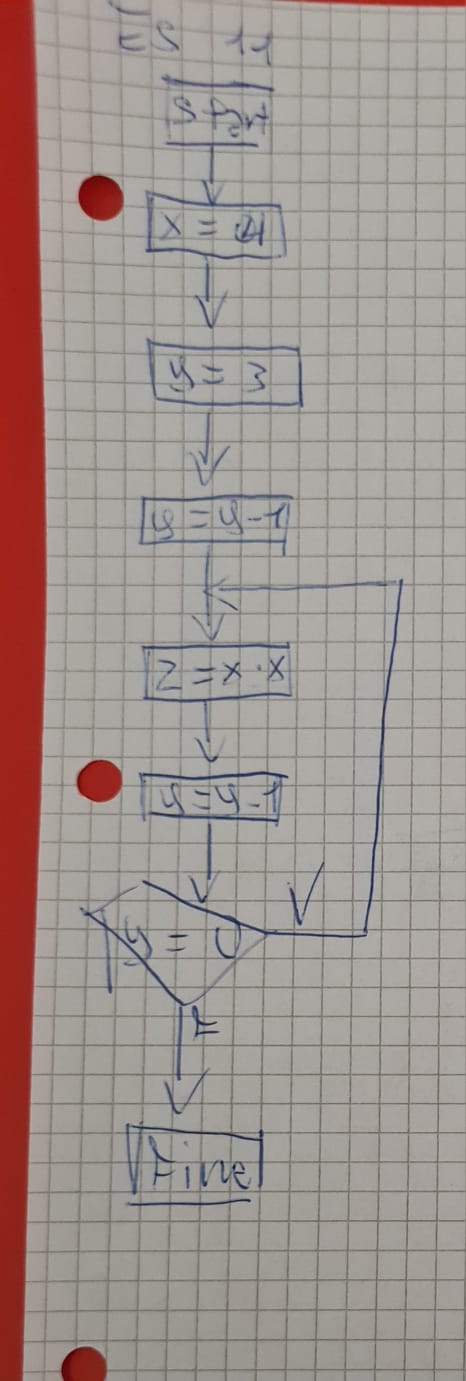 ES 11
Start
x = 4
y = 3
y = y - 1
z = x · x
y = y - 1
y = 0
V
F
Fine